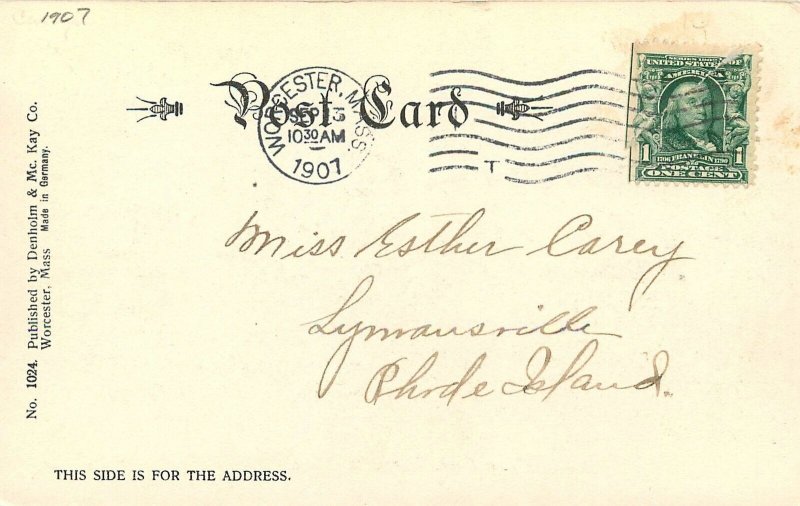 1907
Post Card
WORCESTER, MASS.
SEP 13
10 30 AM
1907
T
SERIES 1902
UNITED STATES OF
AMERICA
1 1706 FRANKLIN 1790 1
POSTAGE
ONE CENT
Miss Esther Carey
Lymansville
Rhode Island.
No. 1024. Published by Denholm & Mc. Kay Co.
Worcester, Mass Made in Germany.
THIS SIDE IS FOR THE ADDRESS.